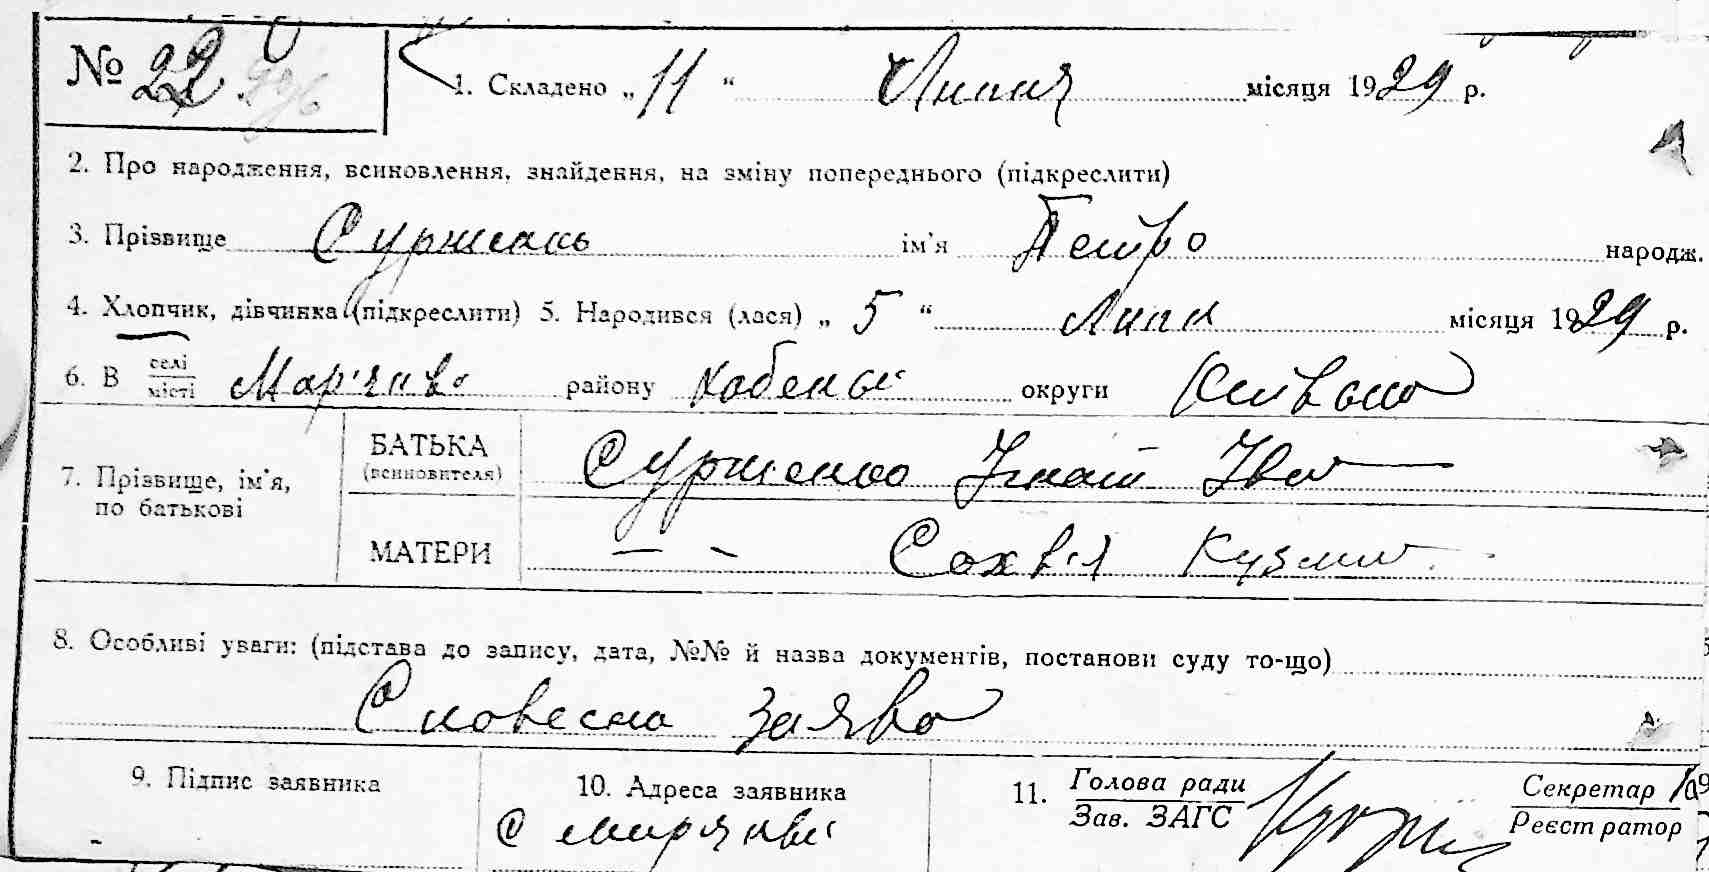 № 22 1. Складено „ 11 “ Липня місяця 1929 р.
2. Про народження, всиновлення, знайдення, на зміну попереднього (підкреслити)
3. Прізвище ім'я Петро народж.
4. Хлопчик, дівчинка (підкреслити) 5. Народився (лася) „ 5 “ Липн місяця 1929 р.
6. В селі місті району Хабенсь округи
7. Прізвище, ім'я, по батькові
БАТЬКА (всиновителя) Ігнат Іва
МАТЕРИ — - Сохвія Кузмин
8. Особливі уваги: (підстава до запису, дата, №№ й назва документів, постанови суду то-що)
Словесна заява
9. Підпис заявника
10. Адреса заявника
11. Голова ради Секретар
Зав. ЗАГС Реєстратор